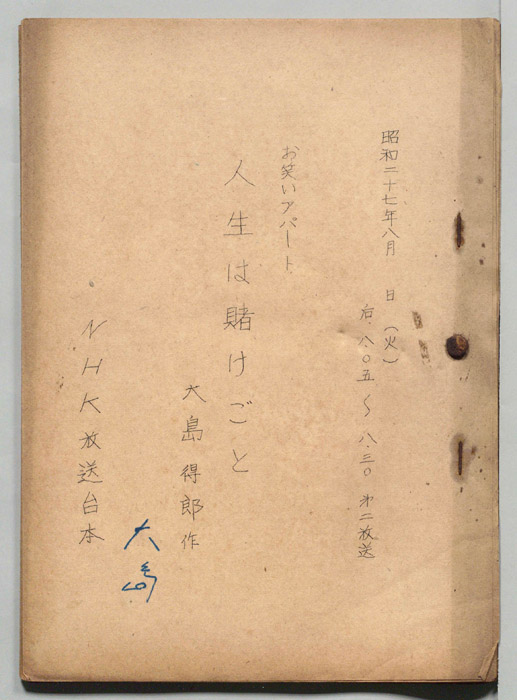 昭和二十七年八月　日（火）
后.八.〇五〜八.三〇　第二放送
お笑いアパート
人生は賭けごと
大島得郎作
大島
NHK放送台本